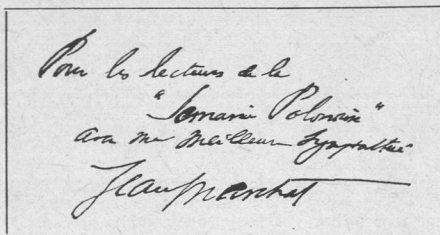 Pour les lecteurs de la
"Semaine Polonaise"
avec ma meilleure sympathie
Jean Marchat